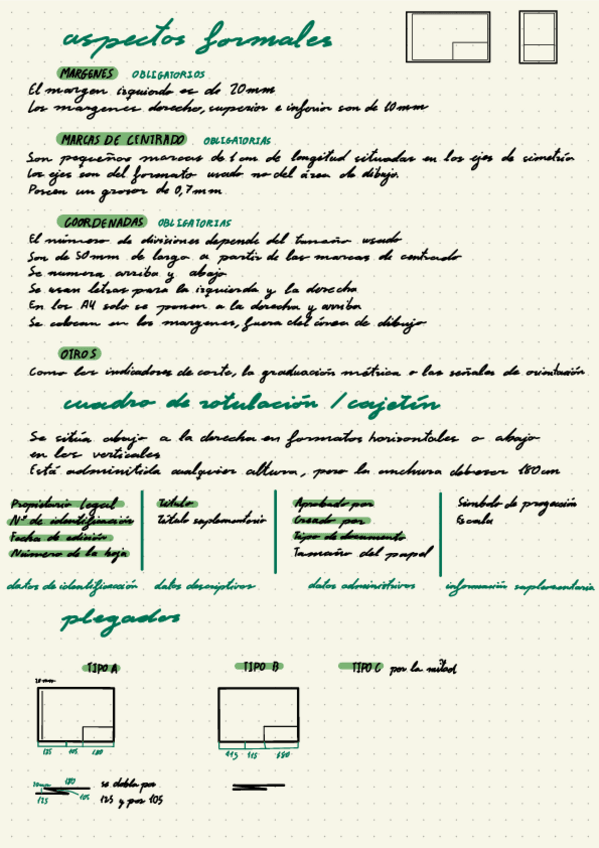 aspectos formales
MARGENES OBLIGATORIOS
El margen izquierdo es de 20mm
Los margenes derecho, superior e inferior son de 10mm
MARCAS DE CENTRADO OBLIGATORIAS
Son pequeñas marcas de 1cm de longitud situadas en los ejes de simetría
Los ejes son del formato usado no del área de dibujo.
Poseen un grosor de 0,7mm
COORDENADAS OBLIGATORIAS
El número de divisiones depende del tamaño usado
Son de 50mm de largo a partir de las marcas de centrado
Se numera arriba y abajo
Se usan letras para la izquierda y la derecha
En los A4 solo se ponen a la derecha y arriba
Se colocan en los margenes, fuera del área de dibujo
OTROS
Como los indicadores de corte, la graduación métrica o las señales de orientación
cuadro de rotulación / cajetín
Se sitúa abajo a la derecha en formatos horizontales o abajo
en los verticales
Está adminitida cualquier altura, pero la anchura debe ser 180cm
Propietario legal
Nº de identificación
Fecha de edición
Número de la hoja
datos de identificación
Título
Título suplementario
datos descriptivos
Aprobado por
Creado por
Tipo de documento
Tamaño del papel
datos administrativos
Símbolo de proyección
Escala
información suplementaria
plegados
TIPO A
TIPO B
TIPO C por la mitad
20mm
125 105 180
115 115 180
180
125 105
se dobla por
125 y por 105